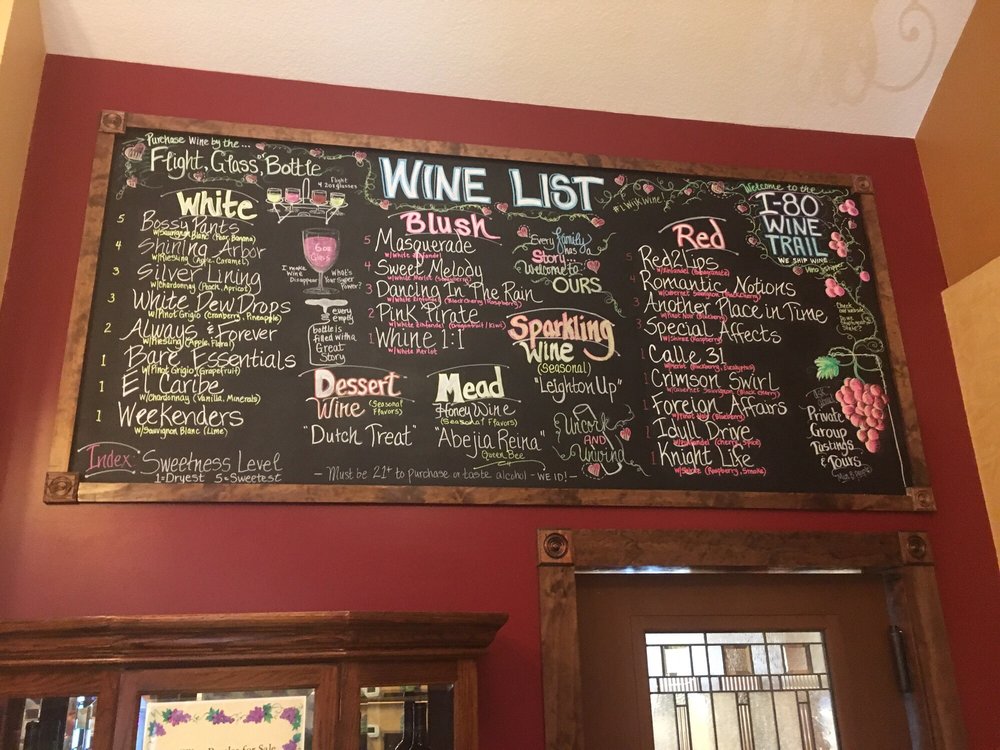 Purchase Wine by the...
Flight, Glass, Bottle
Flight
4 2oz glasses
WINE LIST
#IWIJKWine
Welcome to the
I-80
WINE
TRAIL
WE SHIP WINE
White
5 Bossy Pants
w/Sauvignon Blanc (Pear, Banana)
4 Shining Arbor
3 Silver Lining
w/Chardonnay (Peach, Apricot)
3 White Dew Drops
w/Pinot Grigio (Cranberry, Pineapple)
2 Always & Forever
w/Riesling (Apple, Floral)
1 Bare Essentials
w/Pinot Grigio (Grapefruit)
1 El Caribe
w/Chardonnay (Vanilla, Minerals)
1 Weekenders
w/Sauvignon Blanc (Lime)
Index: Sweetness Level
1=Dryest 5=Sweetest
6oz
Glass
I make
Wine
Disappear
What's
Your Super
Power?
every
empty
bottle is
filled with a
Great
Story
Blush
5 Masquerade
w/White Zinfandel
4 Sweet Melody
w/White Merlot
3 Dancing in The Rain
w/White Zinfandel (Black Cherry/Raspberry)
2 Pink Pirate
w/White Zinfandel (Dragonfruit/Kiwi)
1 Whine 1:1
w/White Merlot
Every family
has a
Story...
Welcome to
OURS
Dessert
Wine (Seasonal
Flavors)
"Dutch Treat"
Mead
Honey Wine
(Seasonal Flavors)
"Abejia Reina"
Queen Bee
Sparkling
Wine
(Seasonal)
"Leighton Up"
Uncork
AND
Unwind
Red
5 Red 2 Lips
w/Zinfandel (Pomegranate)
4 Romantic Notions
w/Cabernet Sauvignon (Black Cherry)
3 Another Place in Time
w/Pinot Noir (Blueberry)
3 Special Affects
w/Shiraz (Raspberry)
1 Calle 31
w/Merlot (Blackberry, Eucalyptus)
1 Crimson Swirl
w/Cabernet Sauvignon (Black Cherry)
1 Foreign Affairs
w/Pinot Noir (Blueberry)
1 Idyll Drive
w/Zinfandel (Cherry, Spice)
1 Knight Life
w/Shiraz (Raspberry, Smoke)
Check
our website
Private
Group
Tastings
& Tours
- Must be 21+ to purchase or taste alcohol - WE ID! -